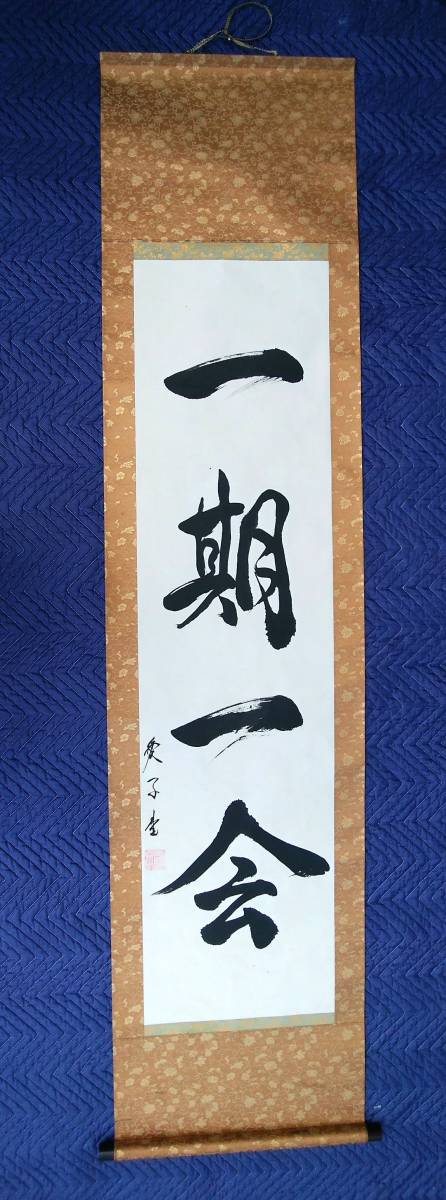 一期一会
愛子書